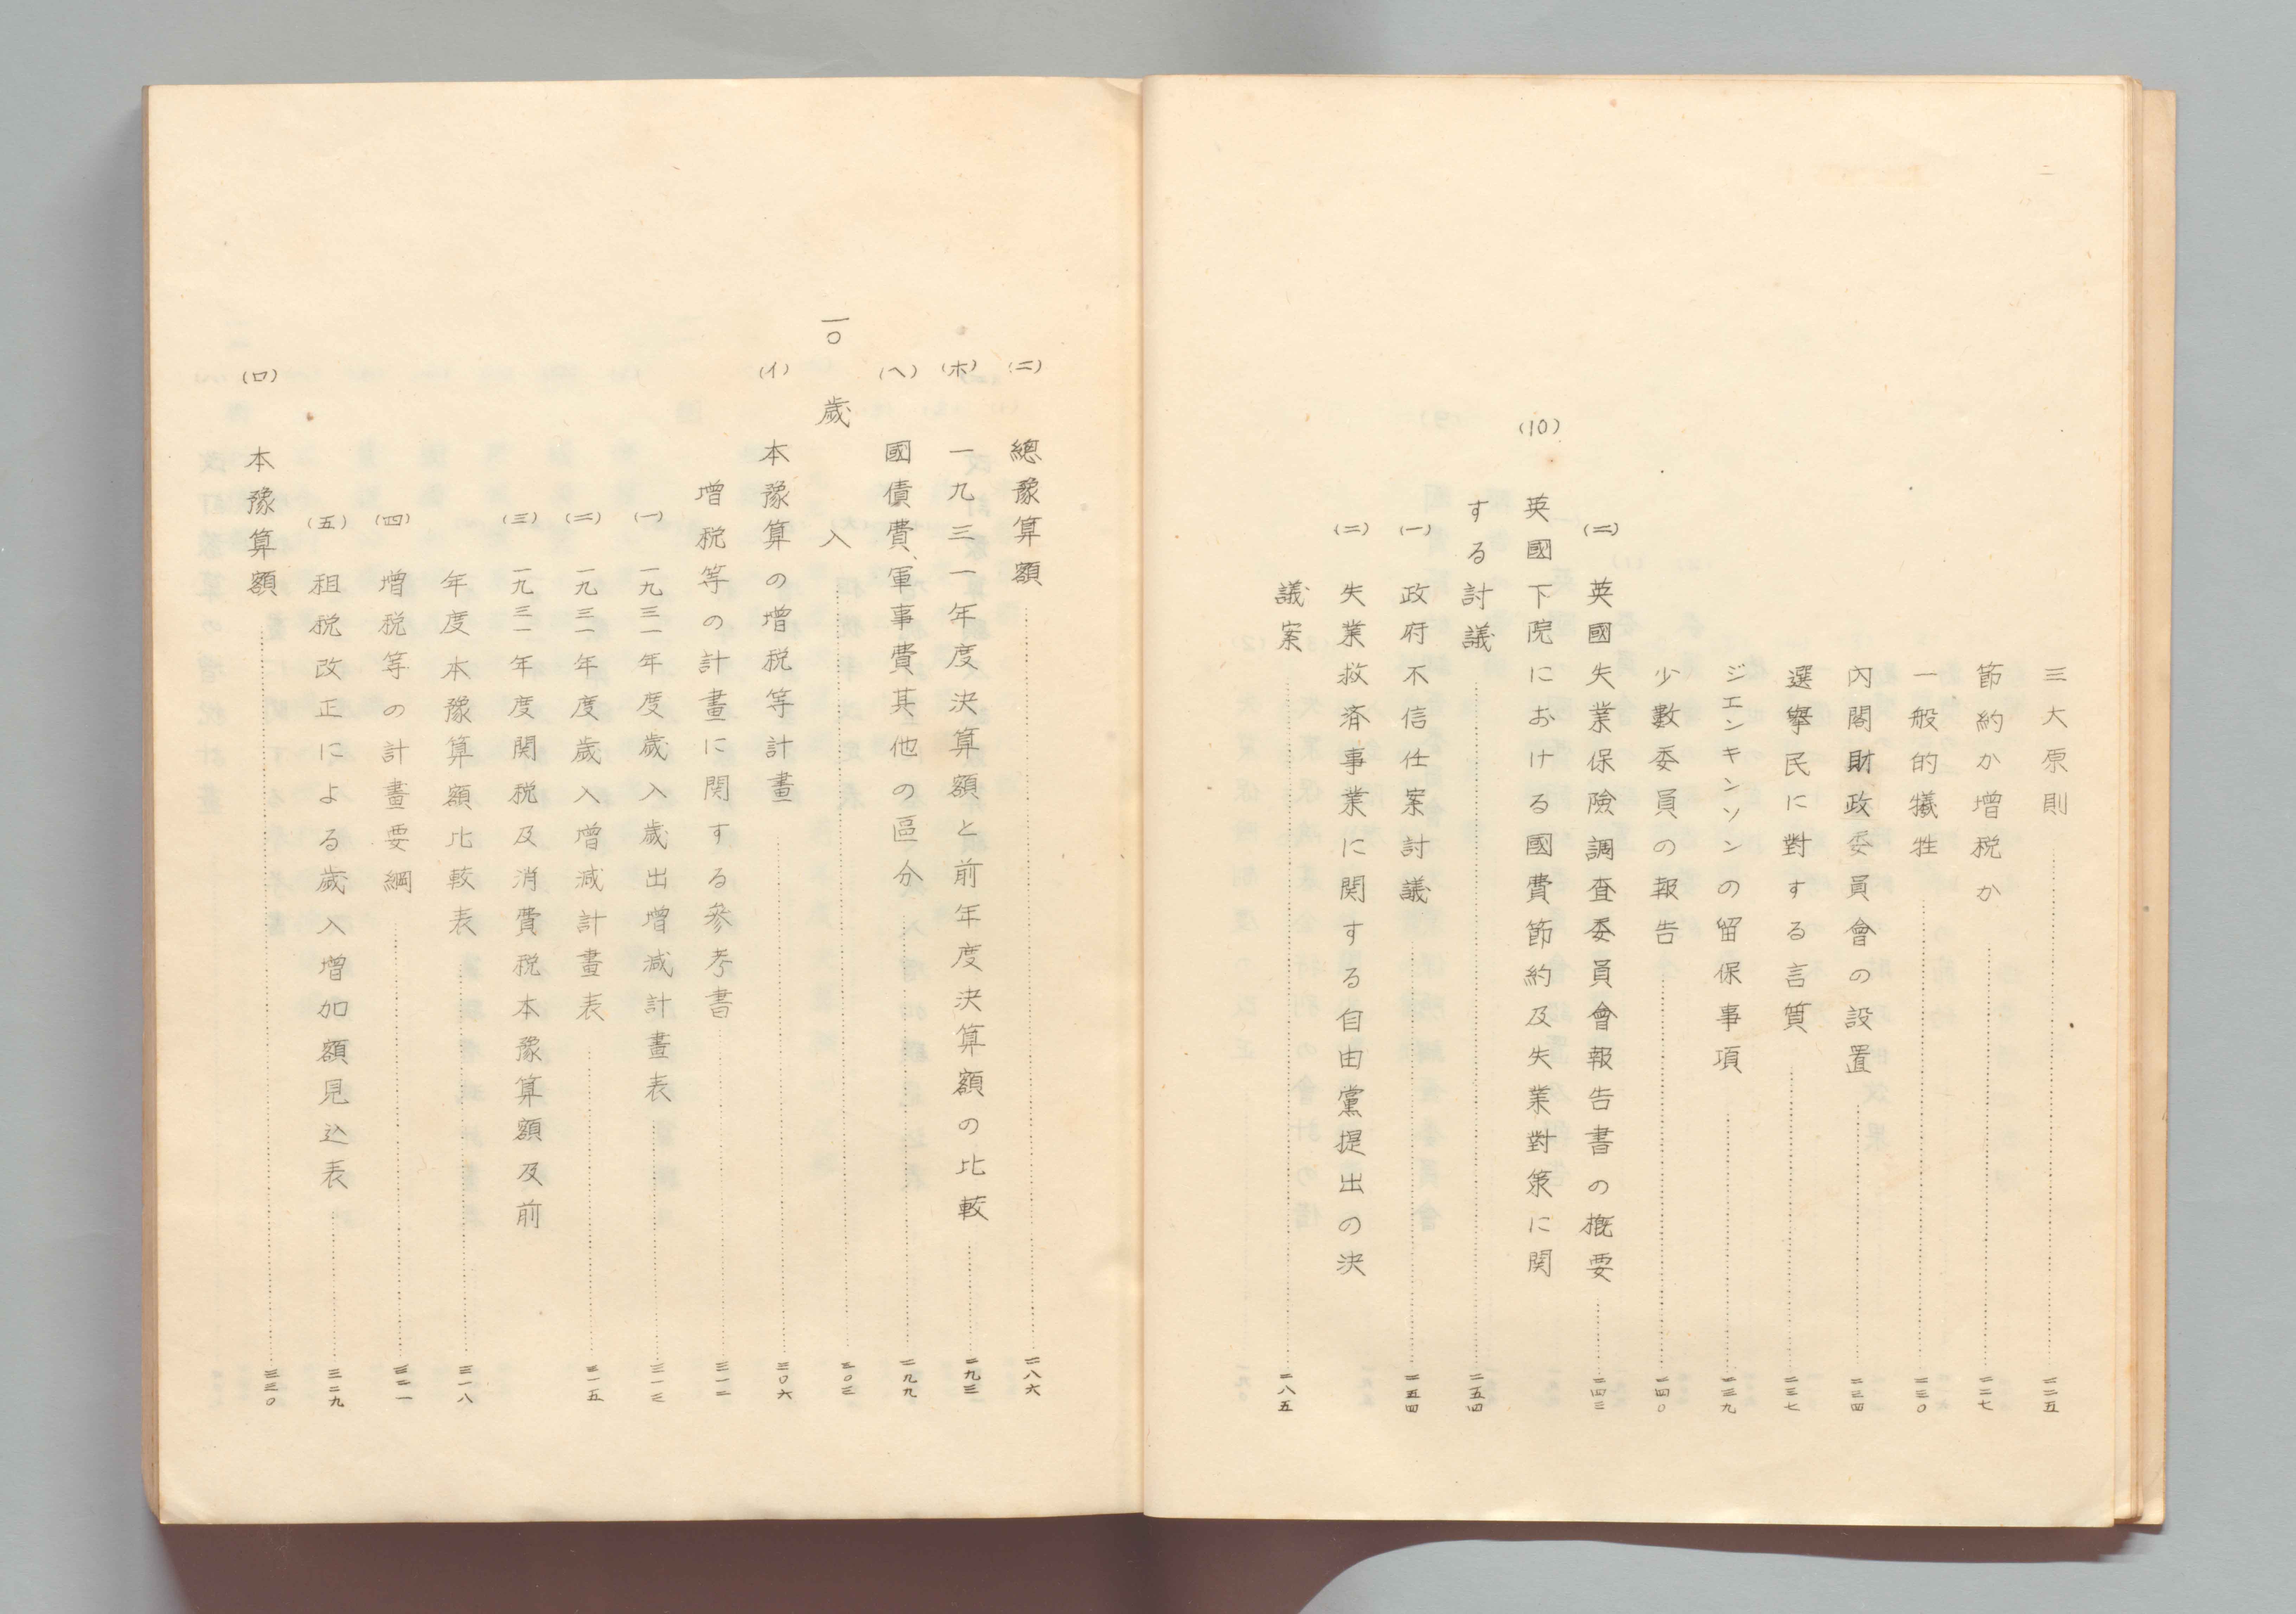 二
三大原則……二二五
節約か増税か……二二七
一般的犠牲……二三〇
內閣財政委員會の設置……二三四
選擧民に對する言質……二三七
ジエンキンソンの留保事項……二三九
少數委員の報告……二四〇
(二) 英國失業保險調査委員會報告書の槪要……二四三
(10) 英國下院における國費節約及失業對策に関
する討議……二五四
(一) 政府不信任案討議……二五四
(二) 失業救済事業に関する自由黨提出の決
議案……二八五
(ニ) 總豫算額……二八六
(ホ) 一九三一年度決算額と前年度決算額の比較……二九三
(ヘ) 國債費、軍事費其他の區分……二九九
一〇 歲入……三〇三
(イ) 本豫算の増税等計畫……三〇六
増税等の計畫に関する參考書……三一二
(一) 一九三一年度歲入歲出増減計畫表……三一三
(二) 一九三一年度歲入増減計畫表……三一五
(三) 一九三一年度関税及消費税本豫算額及前
年度本豫算額比較表……三一八
(四) 増税等の計畫要綱……三二一
(五) 租税改正による歲入増加額見込表……三二九
(ロ) 本豫算額……三三〇